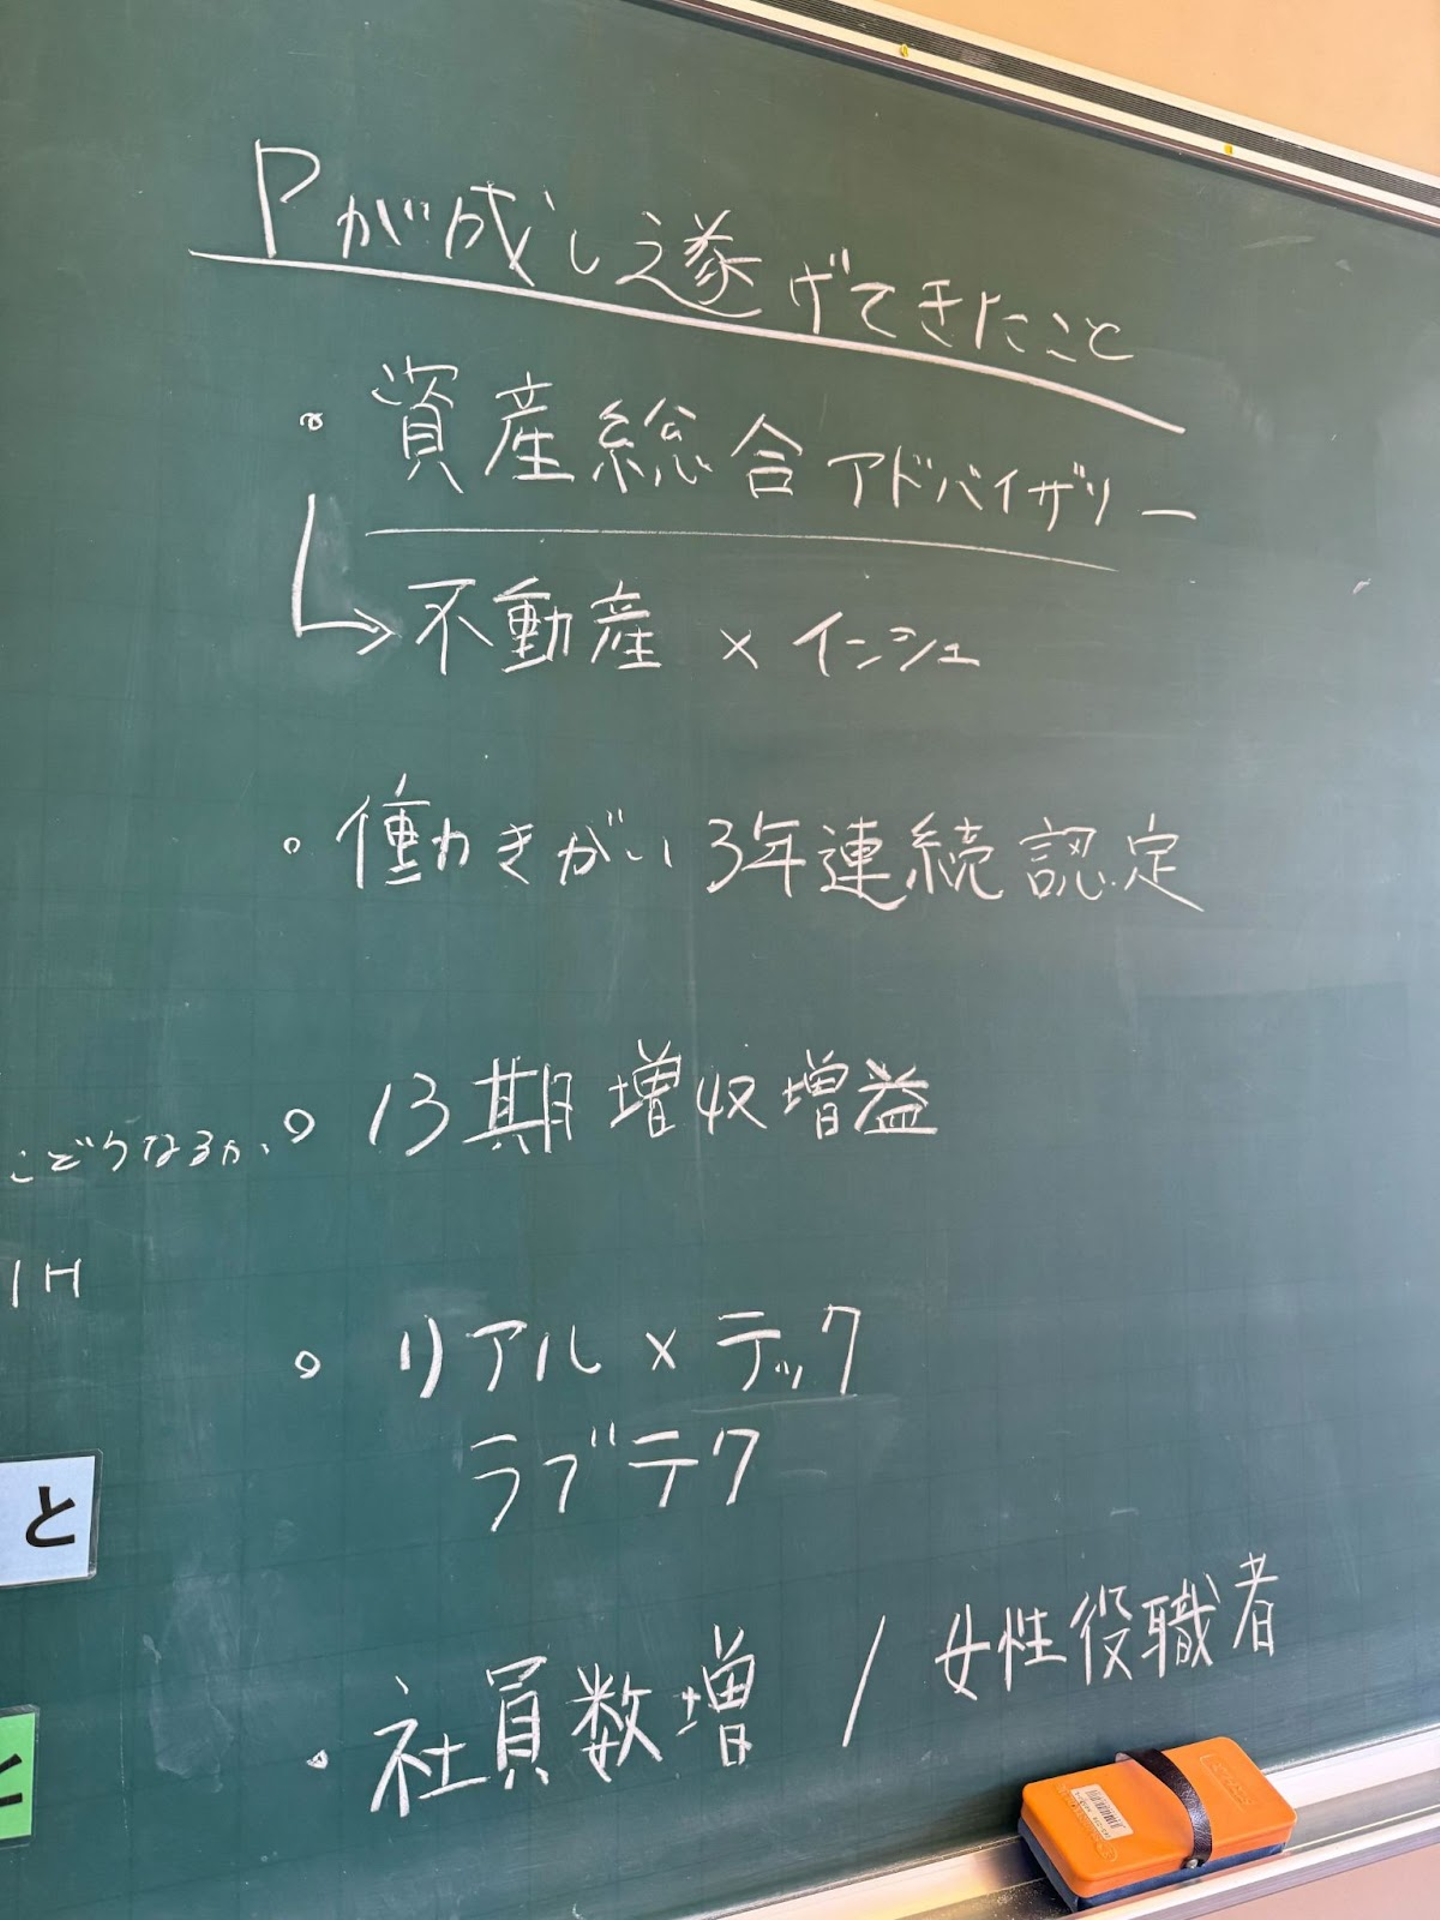 Pが成し遂げてきたこと
・資産総合アドバイザリー
→不動産×インシュ
・働きがい3年連続認定
こどうなるか
・13期増収増益
1H
・リアル×テック
ラブテク
と
・社員数増/女性役職者